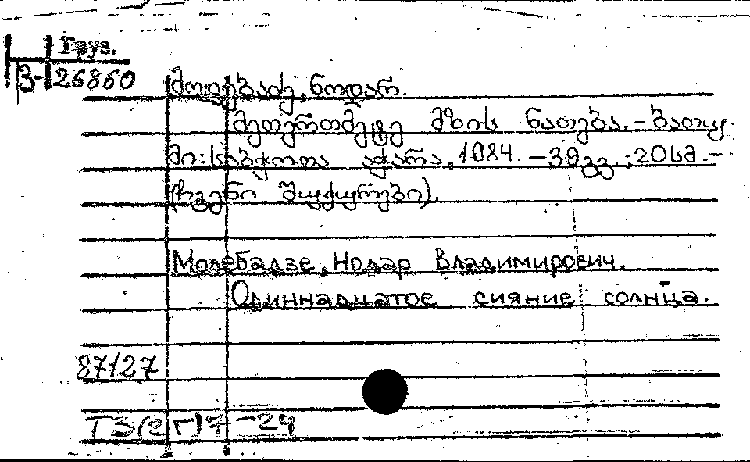 Груз.
3-26860
მოლებაძე, ნოდარ.
მეთერთმეტე მზის ნათება. – ბათუ-
მი: საბჭოთა აჭარა, 1984. – 39 გვ.; 20 სმ. –
(ჩვენი შუქურები).
Молебадзе, Нодар Владимирович.
Одиннадцатое сияние солнца.
87/27
Т3(2Г)7 – 24